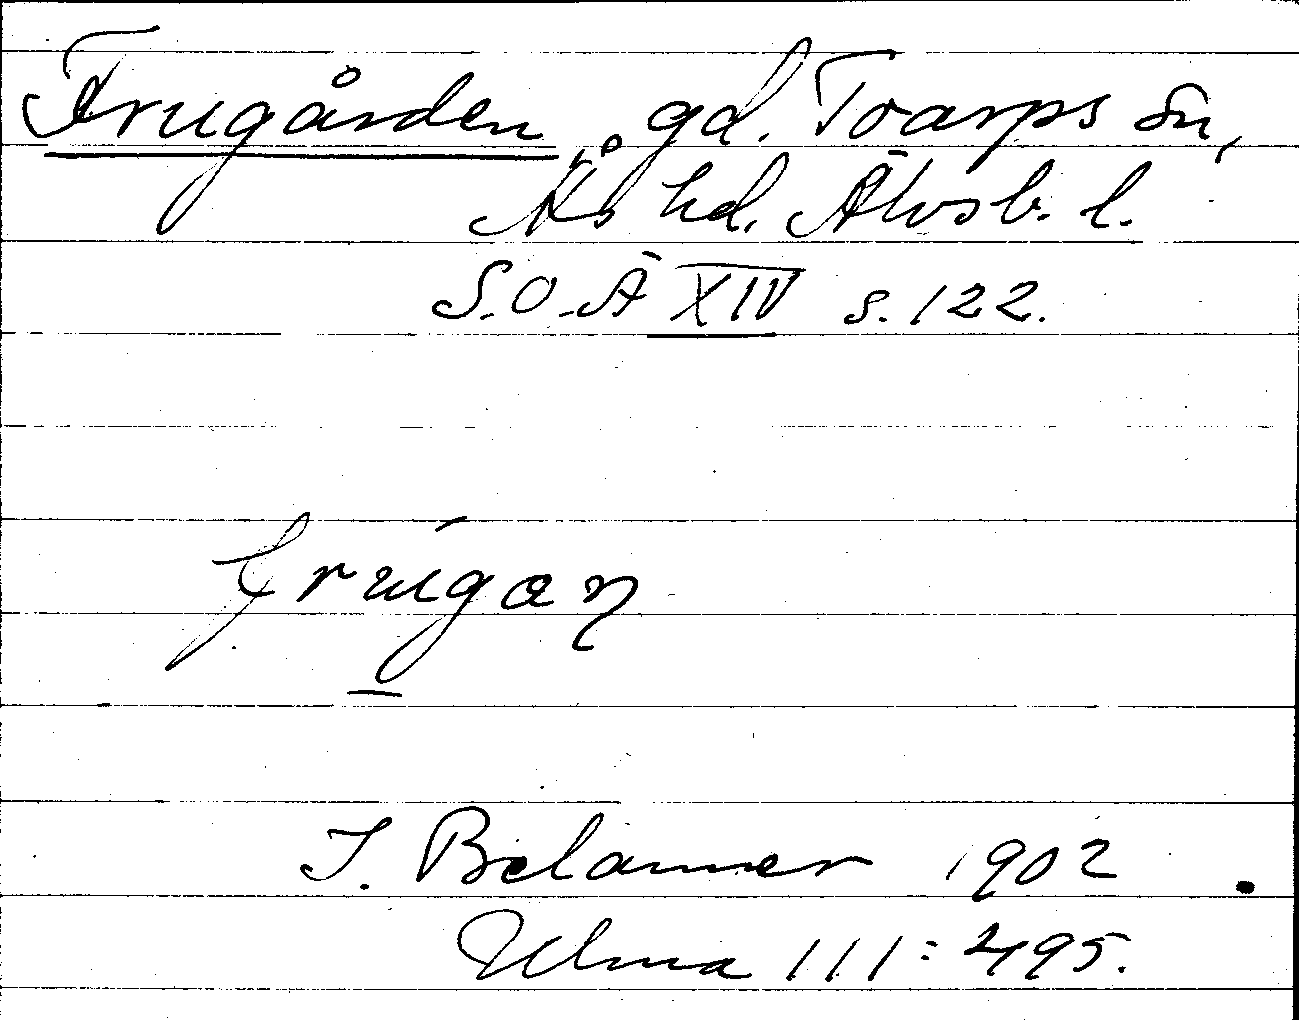 Frugården, gd. Toarps sn,
Ås hd. Älvsb. l.
S.O.Ä XIV s. 122.
frúgaŋ
J. Belanner 1902
Ulma 111:495.